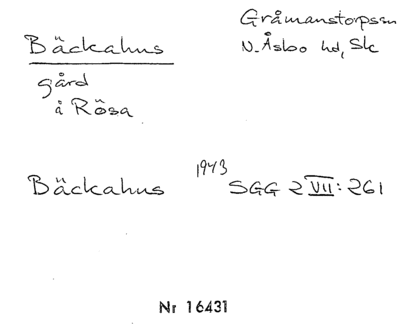 Bäckahus
Gråmanstorpssn
N. Åsbo hd, Sk
gård
å Rösa
Bäckahus 1943 SGG 2 VII: 261
Nr 16431